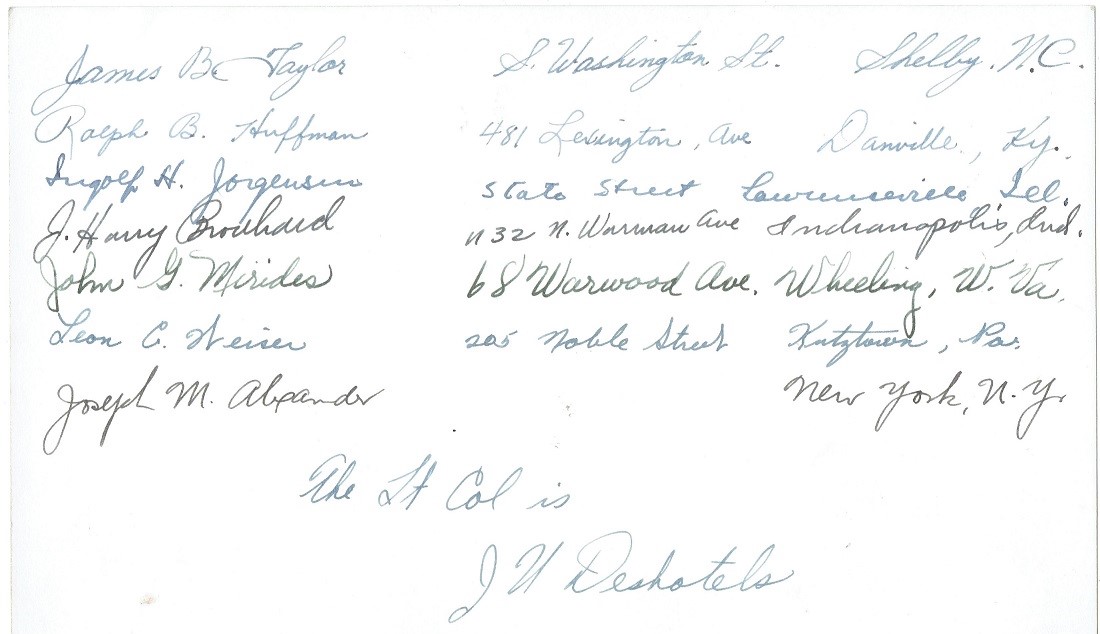 James B. Taylor S. Washington St. Shelby, N.C.
Ralph B. Huffman 481 Lexington, Ave Danville, Ky.
Ingolf H. Jorgensen State Street Lawrenceville Ill.
J. Harry Brouhard 1132 N. Warman Ave Indianapolis, Ind.
John G. Mirides 68 Warwood Ave. Wheeling, W. Va.
Leon C. Weiser 205 Noble Street Kutztown, Pa.
Joseph M. Alexander New York, N.Y.
The Lt Col is
J U Deshotels